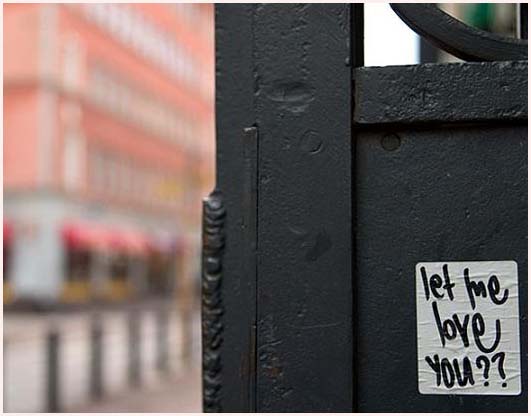 let me
love
you??